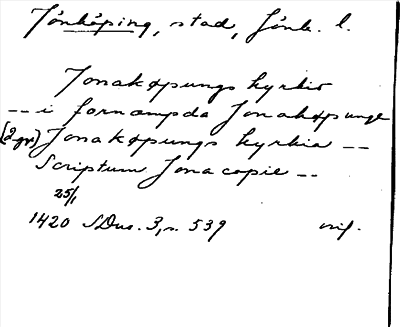 Jönköping, stad, Jönk. l.
Jonakøpungs kyrkio
-- i fornæmpda Jonakøpunge
(2 gr) Jonakøpungs kyrkia --
Scriptum Jonacopie --
25/1
1420 SDns. 3, s. 539 orig.